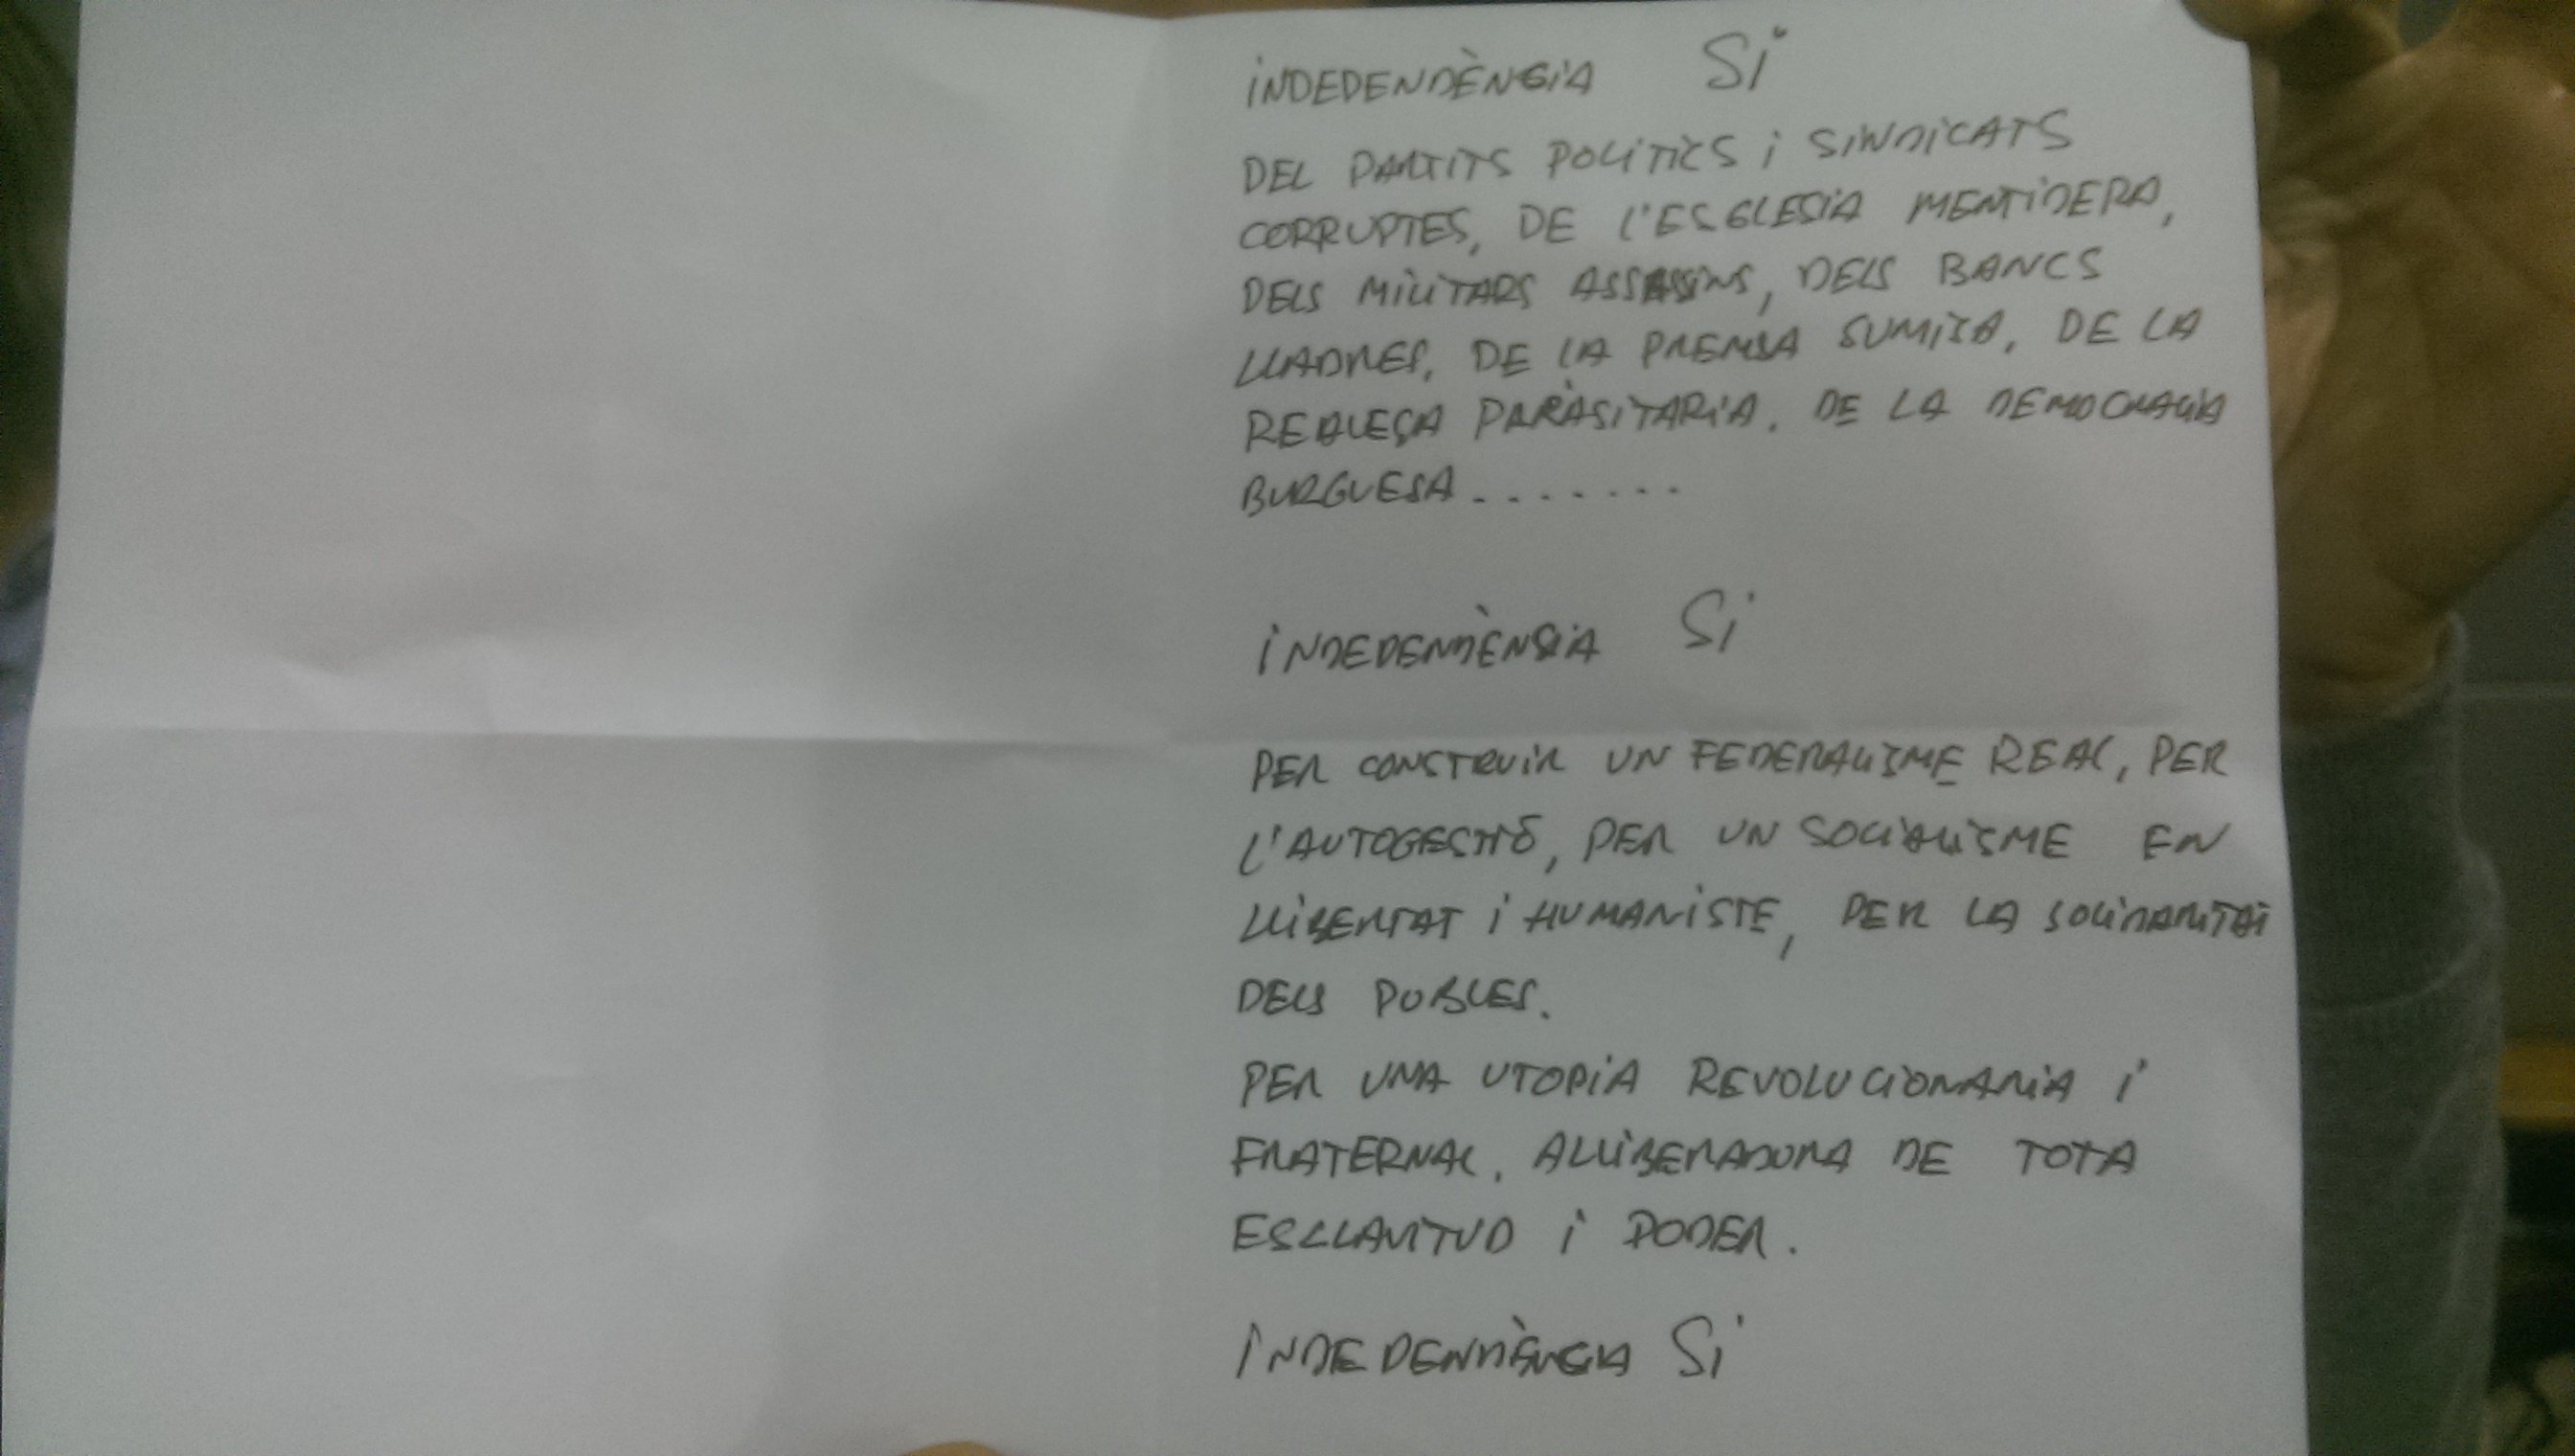 INDEPENDÈNCIA Si
DEL PARTITS POLITICS i SINDICATS
CORRUPTES, DE L'ESGLESIA MENTIDERA,
DELS MILITARS ASSASSINS, DELS BANCS
LLADRES, DE LA PREMSA SUMISA, DE LA
REALESA PARÀSITARIA. DE LA DEMOCRACIA
BURGUESA .......
INDEPENDÈNSIA Si
PER CONSTRUIR UN FEDERALISME REAL, PER
L'AUTOGESTIÓ, PER UN SOCIALISME EN
LLIBERTAT i HUMANISTE, PER LA SOLIDARITAT
DELS POBLES.
PER UNA UTOPIA REVOLUCIONARIA i
FRATERNAL, ALLIBERADORA DE TOTA
ESCLAVITUD i PODER.
INDEPENDÈNCIA Si